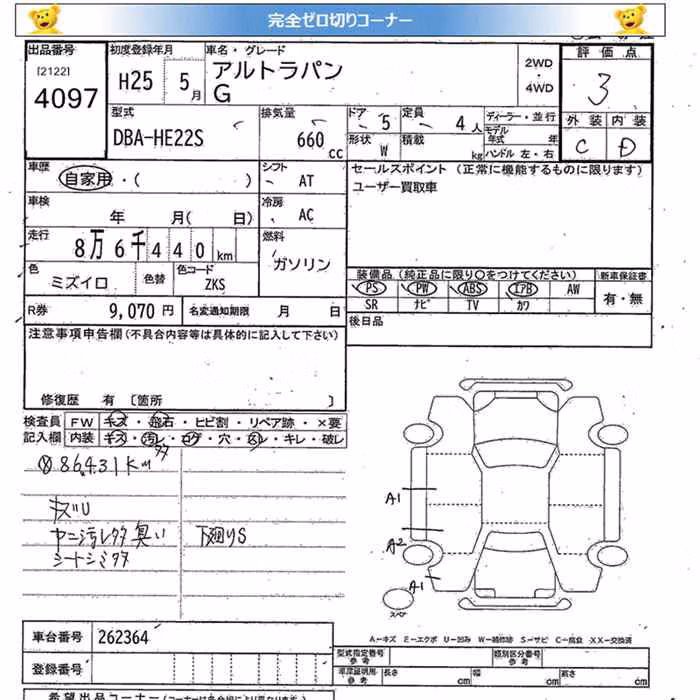 完全ゼロ切りコーナー
出品番号 初度登録年月 車名・グレード 評価点
[2122] 4097 H25 5月 アルトラパン G 2WD・4WD 3
型式 排気量 ドア 5 定員 4人 ディーラー・並行 外装 内装
DBA-HE22S 660cc 形状 W 積載 kg モデル年式 年 ハンドル 左・右 C D
車歴 自家用・( ) シフト AT セールスポイント (正常に機能するものに限ります)
ユーザー買取車
車検 年 月( 日) 冷房 AC
走行 8万6千440km 燃料 ガソリン
色 ミズイロ 色替 色コード ZKS
装備品 (純正品に限り○をつけてください) 新車保証書
PS PW ABS エアB AW 有・無
SR ナビ TV カワ
R券 9,070円 名変通知期限 月 日
後日品
注意事項申告欄(不具合内容等は具体的に記入して下さい)
修復歴 有 [箇所 ]
検査員 FW キズ・飛石・ヒビ割・リペア跡・×要
記入欄 内装 キズ・汚レ・コゲ・穴・ムレ・キレ・破レ
86431Km
キズU
ヤニ汚レ多々臭い 下廻りS
シートシミ多々
A1
A2
A1
スペア
A-キズ E-エクボ U-凹み W-補修跡 S-サビ C-腐食 XX-交換済
車台番号 262364
型式指定番号 参考 類別区分番号 参考
登録番号
車庫証明用 参考 長さ cm 幅 cm 高さ cm
希望出品コーナー